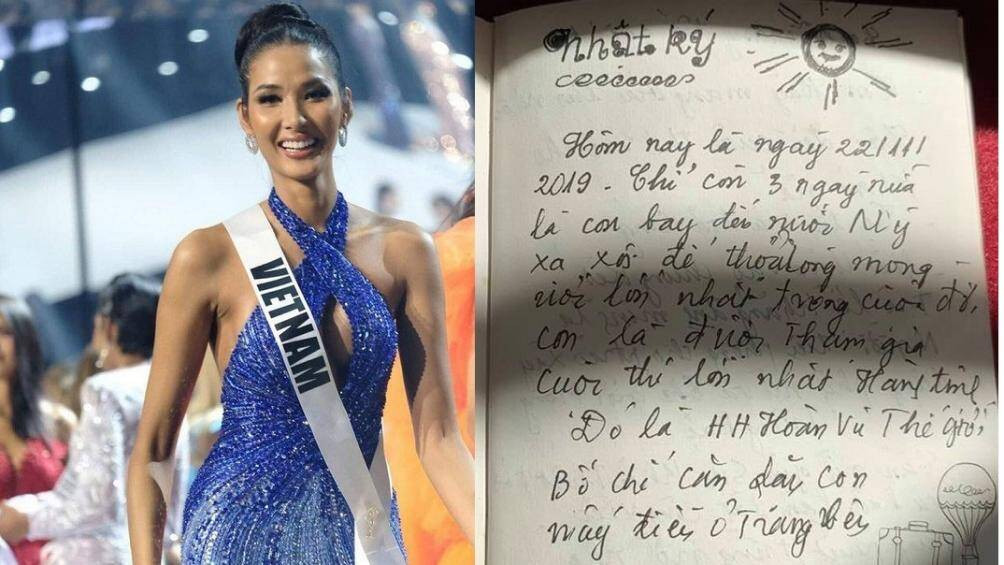 VIETNAM
nhật ký
Hôm nay là ngày 22/11/
2019. Chỉ còn 3 ngày nữa
là con bay đến nước Mỹ
xa xôi để thỏa lòng mong
ước lớn nhất trong cuộc đời,
con là được Tham gia
cuộc thi lớn nhất Hành tinh
Đó là HH Hoàn Vũ Thế giới,
Bố chỉ cần dặn con
mấy điều ở Trang bên